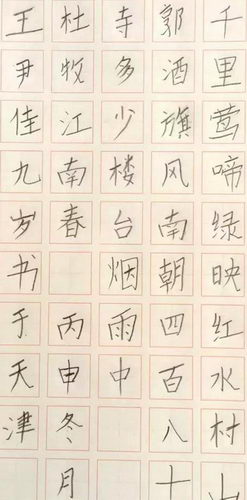 千里莺啼绿映红水村山
郭酒旗风南朝四百八十
寺多少楼台烟雨中
杜牧江南春 丙申冬月
王尹佳九岁书于天津